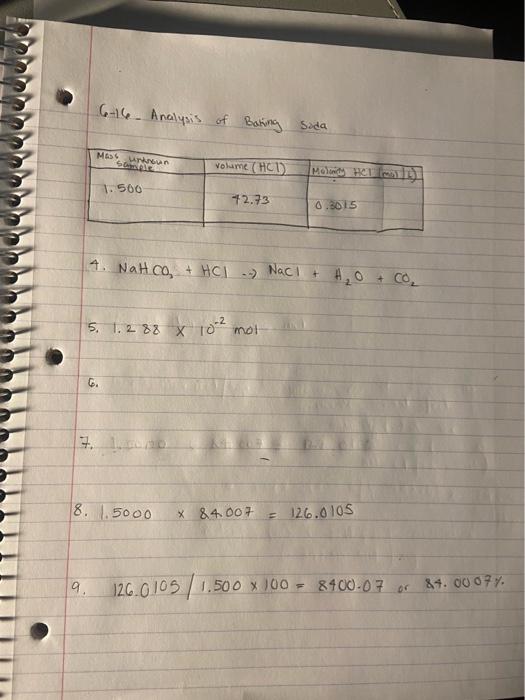 6-16 - Analysis of Baking Soda
Mass unknown sample volume (HCl) Molarity HCl (mol/L)
1.500 42.73 0.3015
4. NaHCO₃ + HCl -> NaCl + H₂O + CO₂
5. 1.288 x 10⁻² mol
6.
7.
8. 1.5000 x 84.007 = 126.0105
9. 126.0105 / 1.500 x 100 = 8400.07 or 84.0007%